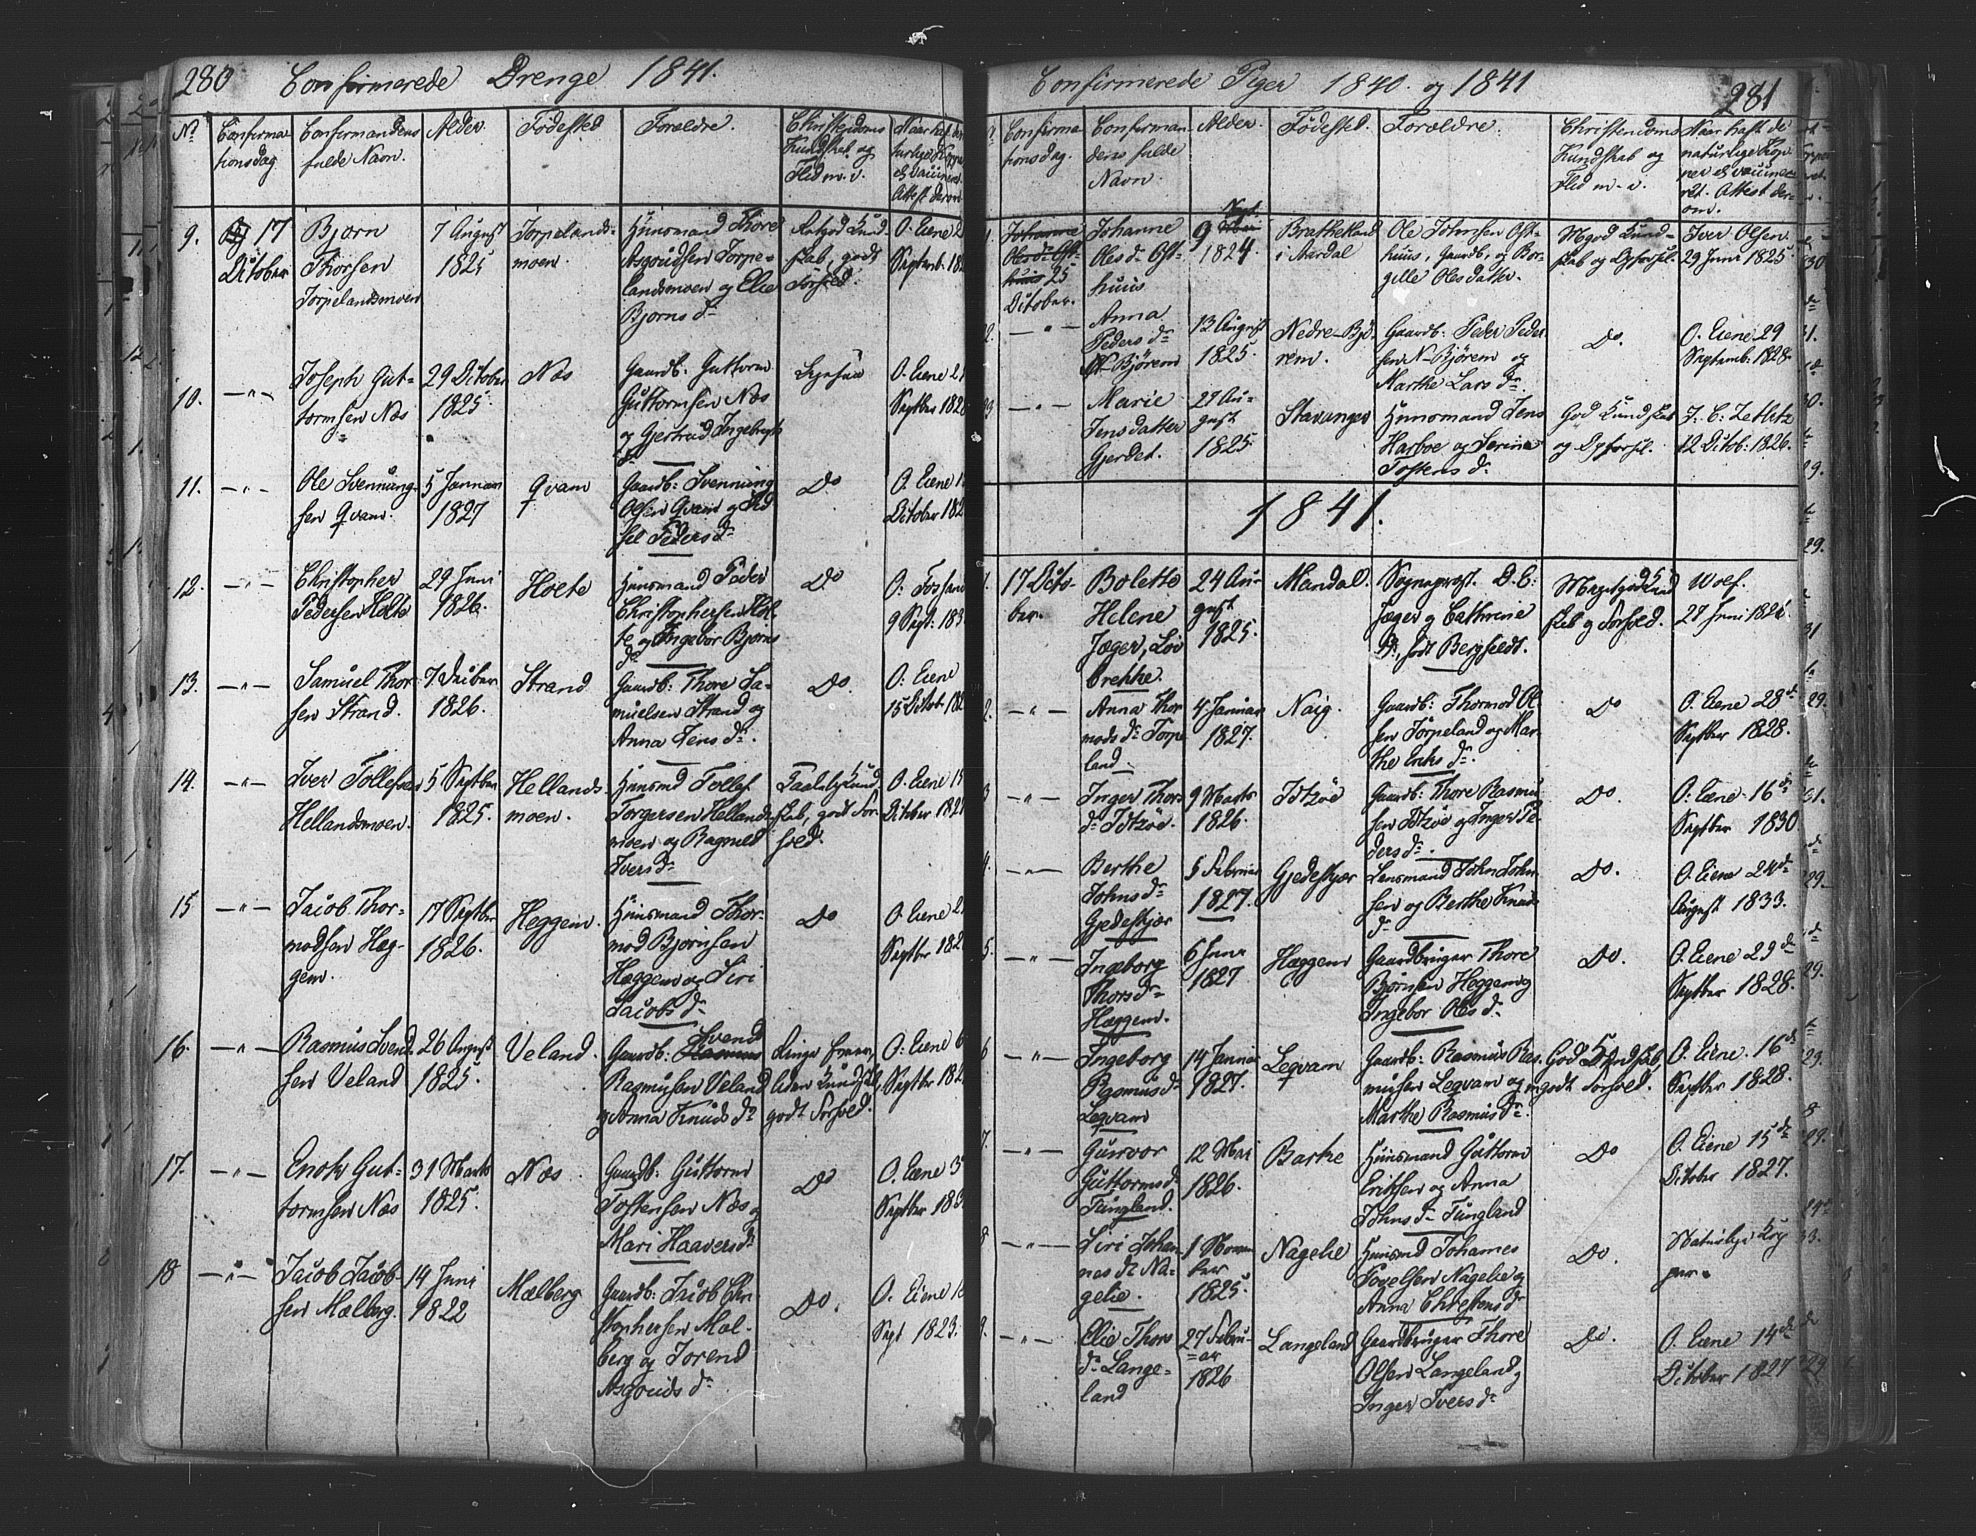 280 Confirmerede Drenge 1841.
No
Confirma
tionsdag
Confirmandens
fulde Navn.
Alder.
Fødested
Forældre.
Christendoms
Kundskab og
Flid m. v.
Naar haft
9.
17
October
Bjørn
Thorsen
Torpelandsmoen
7 August
1825
Torpelands-
moen.
Huusmand Thore
Asgoudsen Torpe-
landsmoen og Elie
Bjørns dr
O. Eiene
Septemb. 182
10.
— " —
Joseph Gut-
tormsen Næs
29 October
1825
Næs
Gaardb: Guttorm
Guttormsen Næs
og Gjertrud Ingebregts
dr
Ligesaa
O. Eiene 2
Septber 182
11.
— " —
Ole Svennung-
sen Qvam.
5 Januar
1827
Qvam
Gaardb: Svennung
Olsen Qvam og Sid
sel Peders dr
Do
O. Eiene 1
October 182
12.
— " —
Christopher
Pedersen Holte
29 Juni
1826.
Holte
Huusmand Peder
Christophersen Hol-
te og Ingebor Bjørns
dr
Do
O. Fossan
9 Sept: 183
13.
— " —
Samuel Thor-
sen Strand.
7 Decber
1826.
Strand
Gaardb: Thore Sa-
muelsen Strand og
Anna Jens dr.
Do.
O. Eiene
15 Octob. 182
14.
— " —
Iver Tollefsen
Hellandsmoen.
5 Septber
1825.
Hellands-
moen.
Huusmd Tollef
Torgersen Hellands
moen og Ragnild
Ivers dr
Taalelig Kund
skab, godt For-
hold.
O. Eiene 15
October 182
15
— " —
Jacob Thor-
modsen Hæg-
gem.
17 Septber
1826.
Heggem.
Huusmand Thor-
mod Bjørnsen
Hæggem og Siri
Jacobs dr
Do
O. Eiene 2
Septber 182
16.
— " —
Rasmus Svend-
sen Veland
26 August
1825.
Veland.
Gaardb: Svend
Rasmusen Veland
og Anna Knuds dr
Ringe Evner,
liden Kundskab
godt Forhold.
O. Eiene 6
Septbr 182
17.
— " —
Enok Gut-
tormsen Næs
31 Marts
1825.
Næs
Gaardb: Guttorm
Tostensen Næs og
Mari Haavers dr
Do
O. Eiene 3
Septber 183
18
— " —
Jacob Jacob-
sen Mælberg.
14 Juni
1822
Mælberg
Gaardb: Jacob Chri-
stophersen Mæl-
berg og Torend
Asgouds dr
Do.
O. Eiene 1
Sept 1823.
Confirmerede Piger 1840. og 1841
281
Confirma
tionsdag.
Confirman
dens fulde
Navn.
Alder.
Fødested.
Forældre.
Christendoms
Kundskab og
Flid m. v.
Naar haft de
naturlige Kop-
per el. vaccine-
ret. Attest der-
om.
1.
25
October.
Johanne
Oles dr Ost-
huus
9 Sept.
1824.
Bratheland
i Aardal
Ole Johnsen Ost-
huus, Gaardb, og Bor-
gille Olesdatter.
Mgod Kund-
skab og Opførsel.
Iver Olsen
29 Juni 1825.
2.
— " —
Anna
Peders dr
N. Bjørem
13 August
1825.
Nedre-Bjö-
rem.
Gaardb: Peder Peder
sen N-Bjørem og
Marthe Lars dr.
Do.
O. Eiene 29
Septemb. 1828.
— " —
Marie
Jensdatter
Gjerdet.
27 Au-
gust
1825
Stavanger
Huusmand Jens
Harboe og Serina
Tostens dr
God Kundskab
og Opførsel.
J. C. Zetlitz
12 Octob: 1826.
1841.
1.
17 Octo-
ber.
Bolette
Helene
Jæger, Löv
brekke.
24 Au-
gust
1825.
Mandal.
Sogneprest. D. C:
Jæger og Cathrine
D., født Bergfeldt.
Megetgod Kund
skab og Forhold.
Woef.
27 Juni 1826.
2.
— " —
Anna Thor
mods dr Torpe
land.
4 Januar
1827.
Naig.
Gaardb: Thormod Ol-
sen Torpeland og Mar-
the Eriks dr.
Do
O. Eiene 28 de
Septber 1828.
3
— " —
Inger Thors
dr Idtzöe.
9 Marts
1826.
Idtzöe
Gaardb: Thore Rasmu-
sen Idtzöe og Inger Pe-
ders dr.
Do.
O. Eiene 16 de
Septber 1830
4.
— " —
Berthe
Johns dr
Gjedeskjær
5 Februar
1827.
Gjedeskjær
Lensmand John John-
sen og Berthe Knuds
dr
Do.
O. Eiene 24 de
August 1833.
5.
— " —
Ingeborg
Thors dr
Hæggem.
6 Juni
1827
Hæggem
Gaardbruger Thore
Bjørnsen Hæggem og
Ingebor Oles dr
Do.
O. Eiene 29 de
Septber 1828.
6
— " —
Ingeborg
Rasmus dr
Leqvam
14 Januar
1827.
Leqvam
Gaardb: Rasmus Ras-
musen Leqvam og
Marthe Rasmus dr.
God Kundskab,
godt Forhold.
O. Eiene 16 de
Septber 1828.
7.
— " —
Gurvor
Guttorms dr
Tungland.
12 Mai
1826.
Barke
Huusmand Guttorm
Eriksen og Anna
Johns dr Tungland
Do
O. Eiene 15 de
October 1827.
8
— " —
Siri Johan-
nes dr Na-
gelie.
1 Novem-
ber
1825.
Nagelie
Huusmd Johannes
Povelsen Nagelie og
Anna Chrestens dr
Do.
Naturlige Kop
per.
9.
— " —
Elie Thors
dr Lange-
land
27 Febru-
ar
1826
Langeland
Gaardbruger Thore
Olsen Langeland og
Inger Ivers dr
Do.
O. Eiene 14 de
October 1827